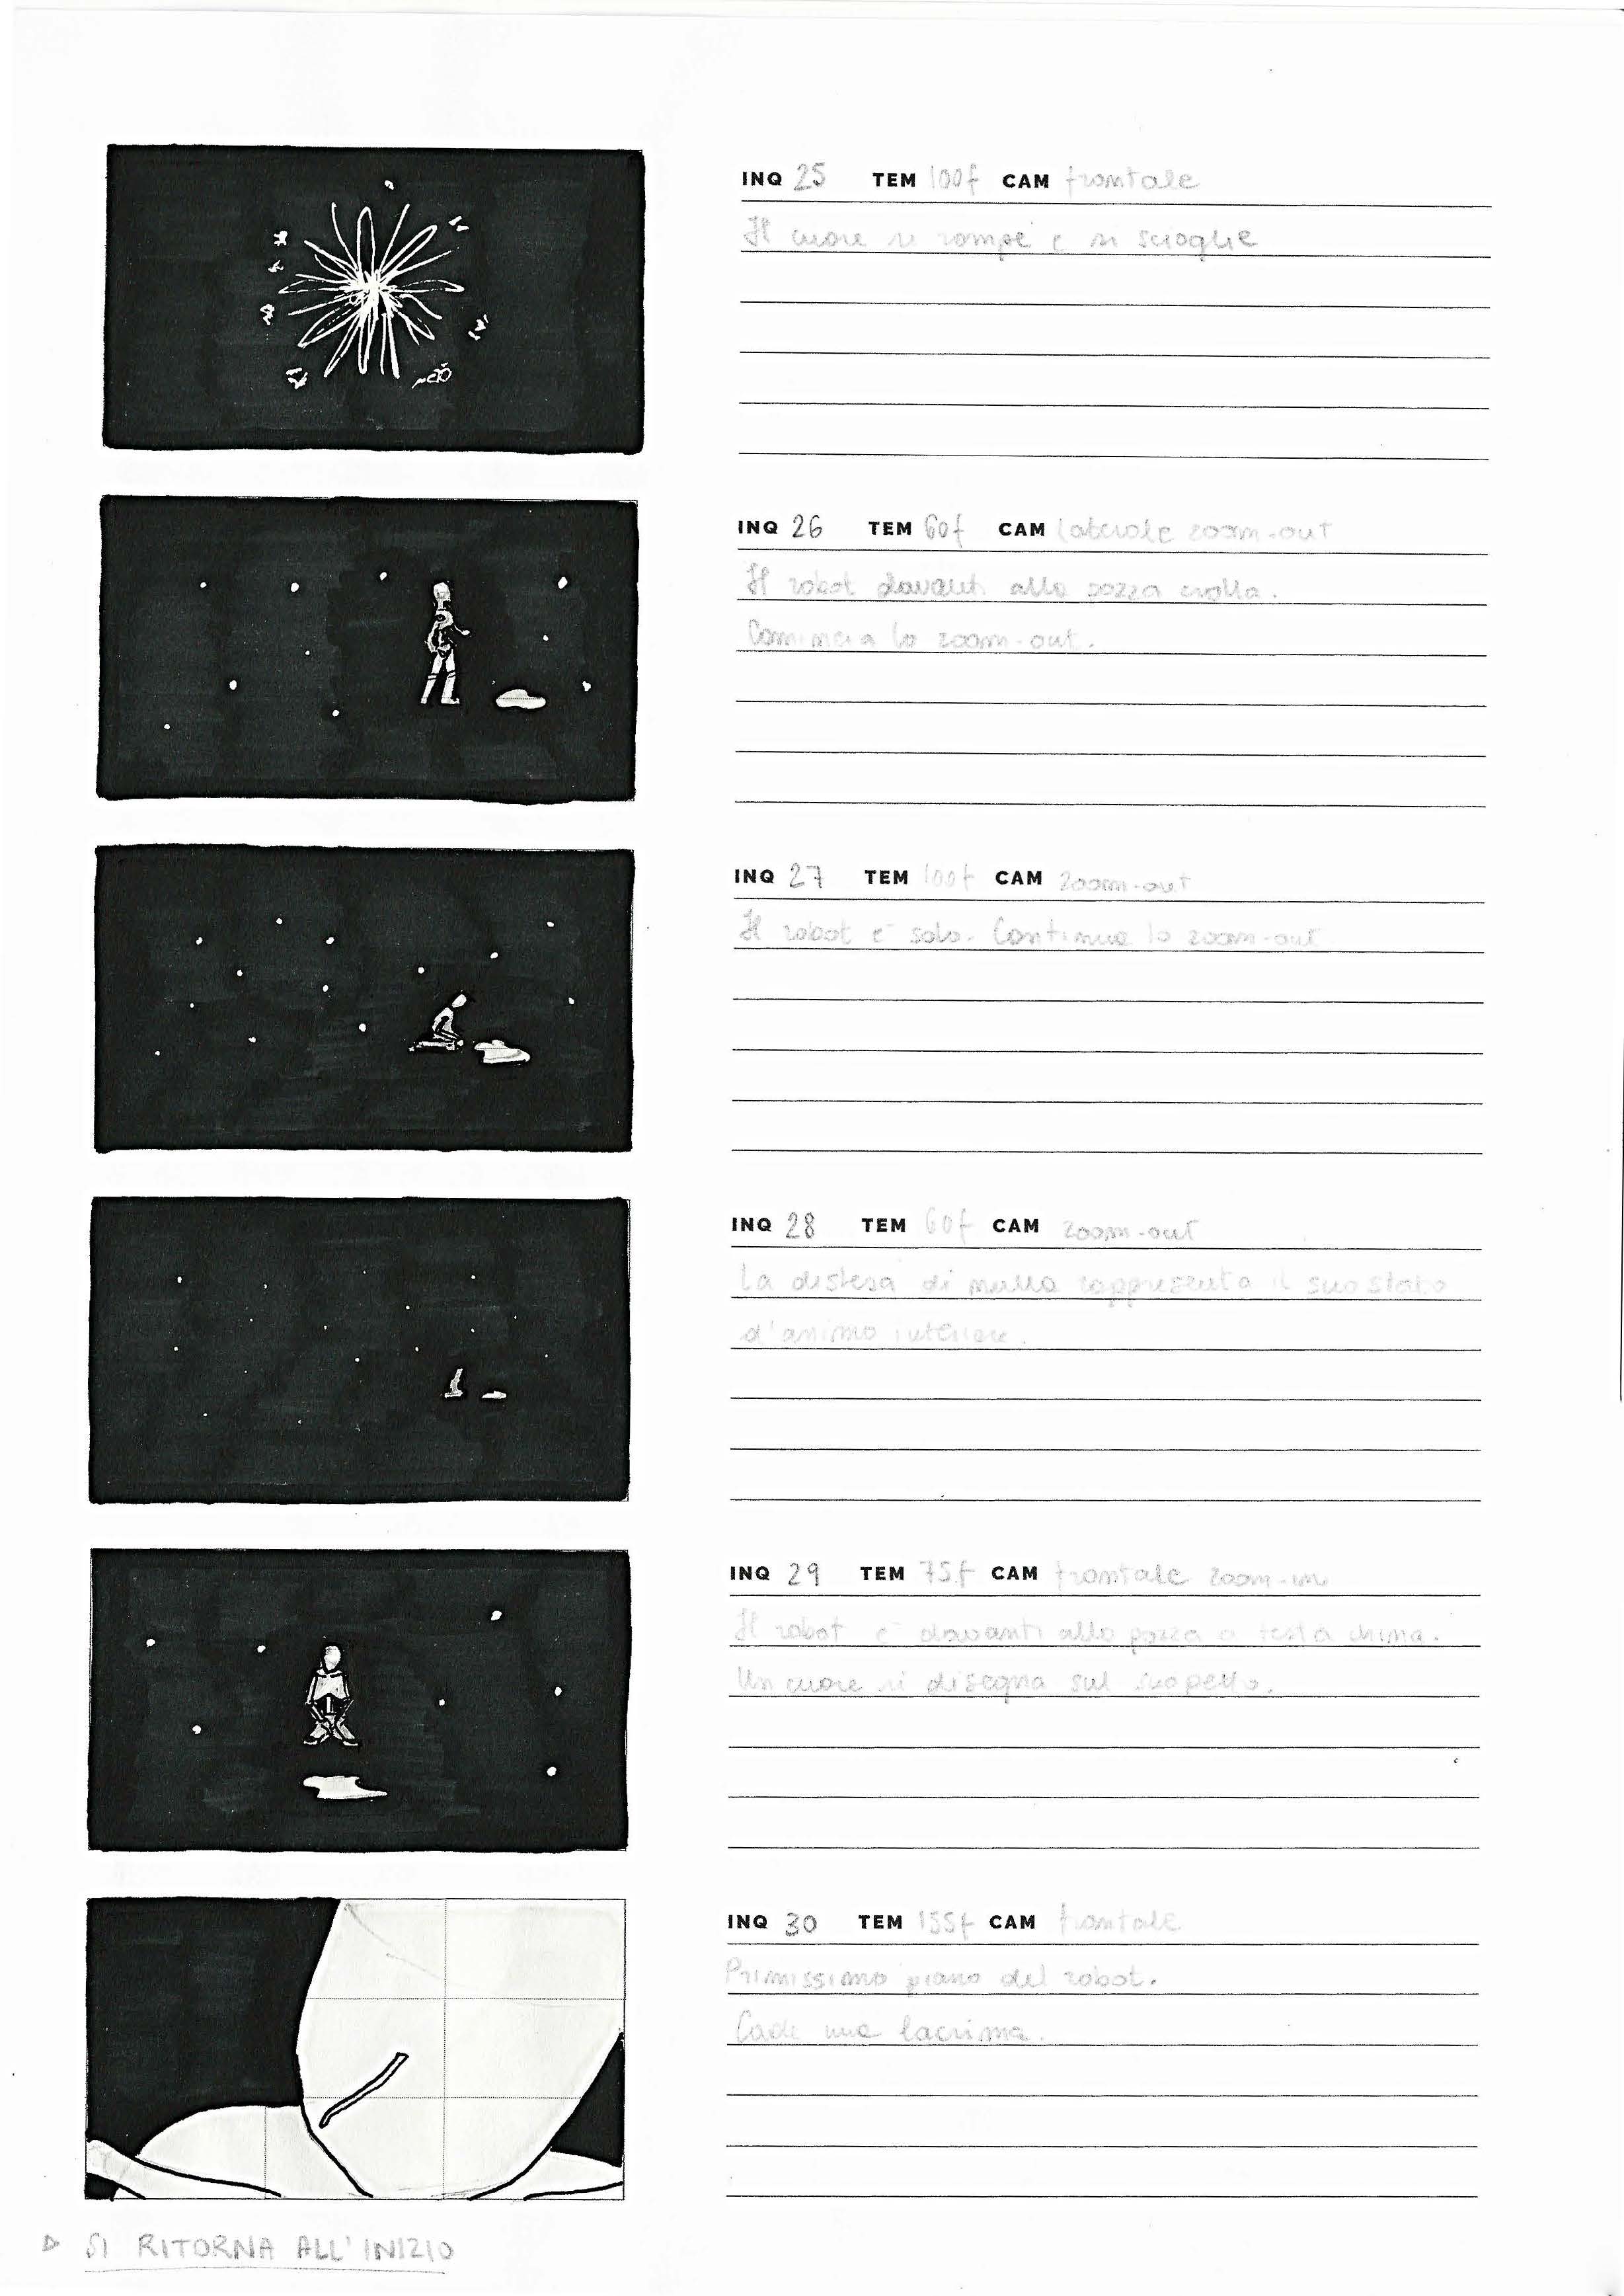 INQ 25 TEM 100f CAM frontale
Il cuore si rompe e si scioglie
INQ 26 TEM 60f CAM laterale zoom-out
Il robot davanti alla pozza crolla.
Comincia lo zoom-out.
INQ 27 TEM 100f CAM zoom-out
Il robot è solo. Continua lo zoom-out
INQ 28 TEM 60f CAM zoom-out
La distesa di nulla rappresenta il suo stato
d'animo interiore.
INQ 29 TEM 75f CAM frontale zoom-in
Il robot è davanti alla pozza a testa china.
Un cuore si disegna sul suo petto.
INQ 30 TEM 155f CAM frontale
Primissimo piano del robot.
Cade una lacrima.
SI RITORNA ALL'INIZIO